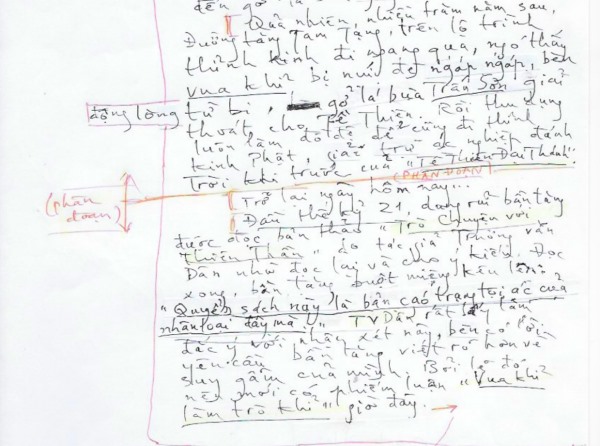 đến gỡ ... nhiều trăm năm sau,
Quả nhiên, nhiều trăm năm sau,
Đường tăng Tam Tạng, trên lộ trình
thỉnh kinh đi ngang qua, ngó thấy
vua khỉ bị núi đè ngáp ngáp, bèn
động lòng từ bi, gỡ lá bùa Trấn Sơn giải
thoát cho Tề Thiên. Rồi thu dụng
luôn làm đồ đệ để cùng đi thỉnh
kinh Phật, giải trừ ác nghiệp đánh
Trời khi trước của "Tề Thiên Đại Thánh".
(PHÂN ĐOẠN)
(phân đoạn)
Trở lại ngày hôm nay...
Đầu thế kỷ 21, dung rủi bần tăng
được đọc bản thảo "Trò chuyện với
Thiên Thần" do tác giả Trương Văn
Dân nhờ đọc lại và cho ý kiến. Đọc
xong, bần tăng buột miệng kêu lên:
"Quyển sách này là bản cáo trạng tội ác của
nhân loại đây mà!" TVDân rất lấy làm
đắc ý với nhận xét này, bèn có lời
yêu cầu bần tăng viết rõ hơn về
suy gẫm của mình. Bởi lẽ đó,
nên mới có phiếm luận "Vua khỉ
làm trò khỉ" giờ đây.